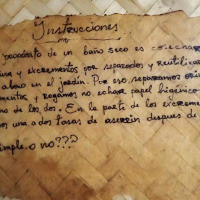 Instrucciones
propósito de un baño seco es cosechar
y excrementos por separados y reutilizar
abono en el jardín. Por eso separamos
y rogamos no echar papel higiénico
de los dos. En la parte de los
una o dos tasas de aserrín después de
o no???